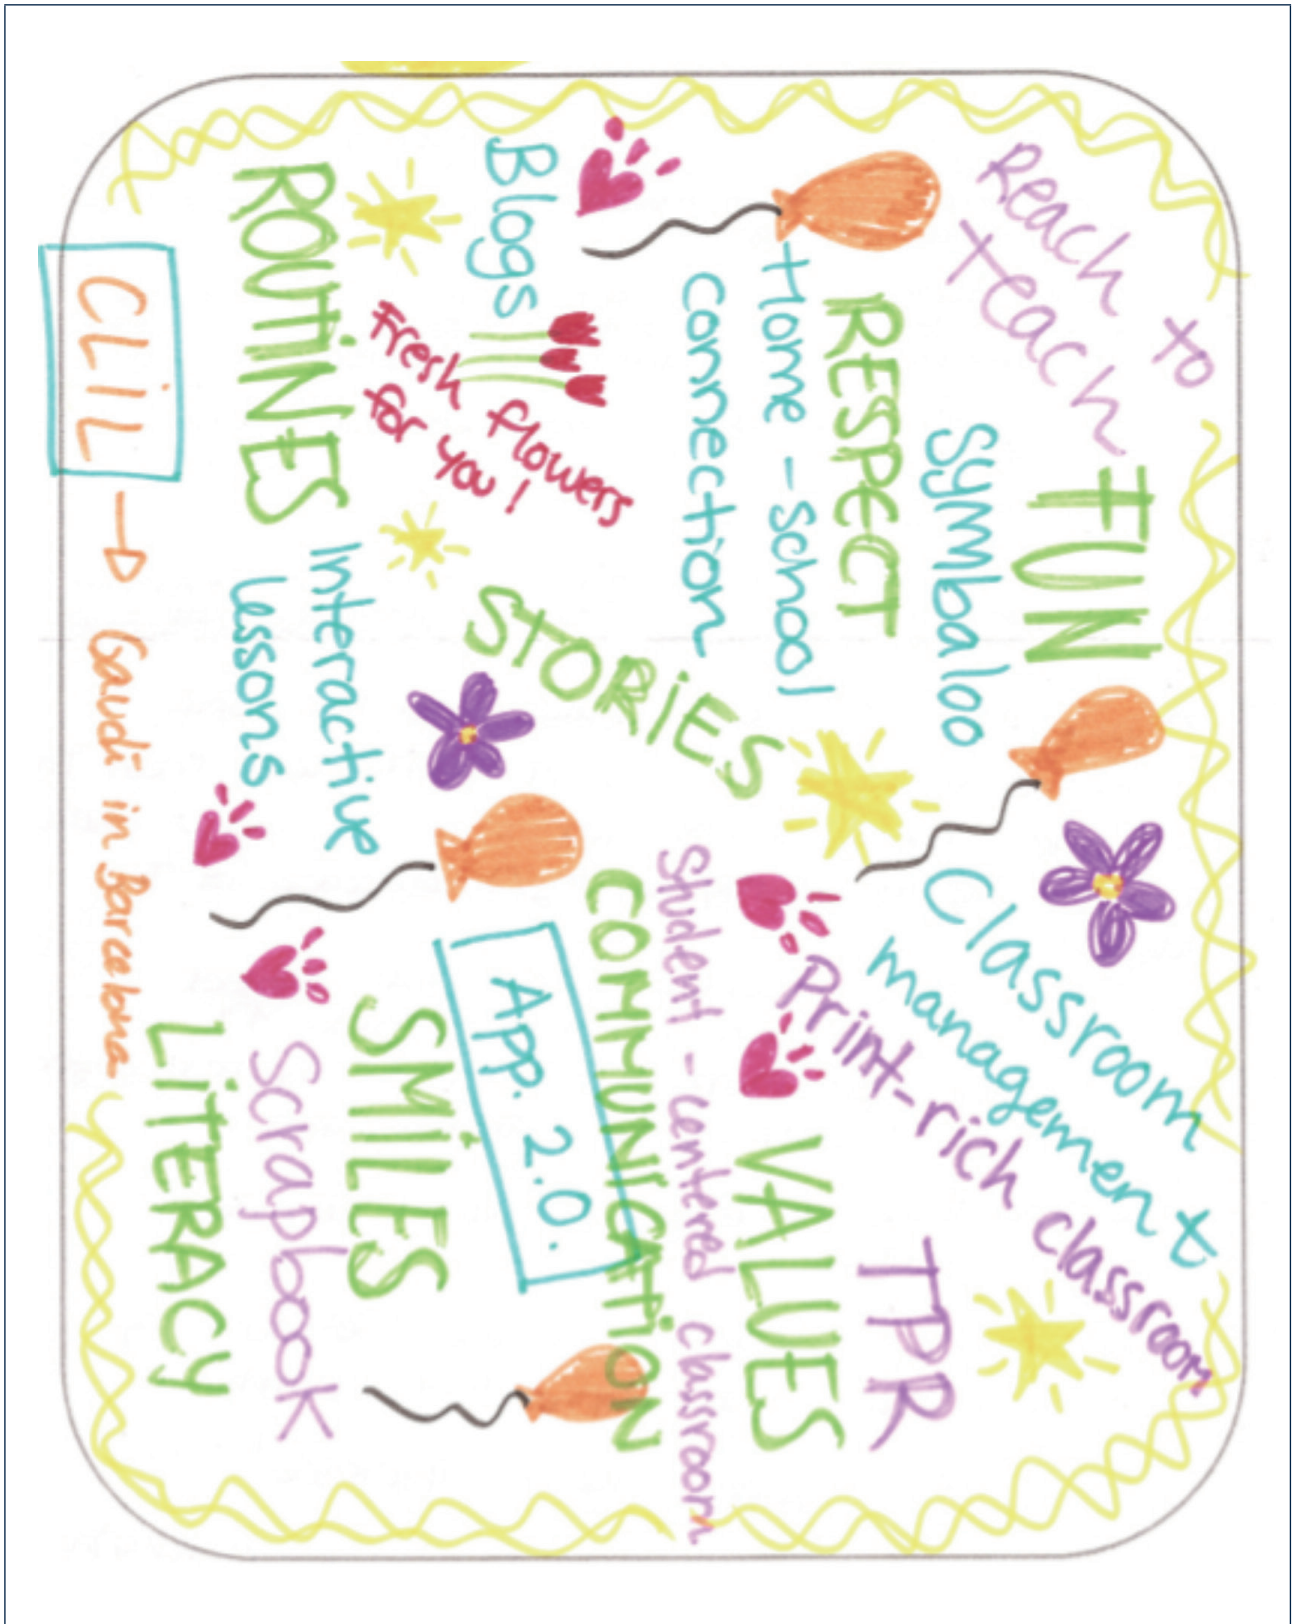 Reach to
Teach
FUN
Symbaloo
RESPECT
Home - School
connection
Blogs
Fresh flowers
for you!
ROUTINES
STORIES
Interactive
Lessons
Classroom
management
Print-rich classroom
TPR
VALUES
Student - centered classroom
COMMUNICATION
App. 2.0.
SMILES
Scrapbook
LITERACY
CLIL → Gaudi in Barcelona